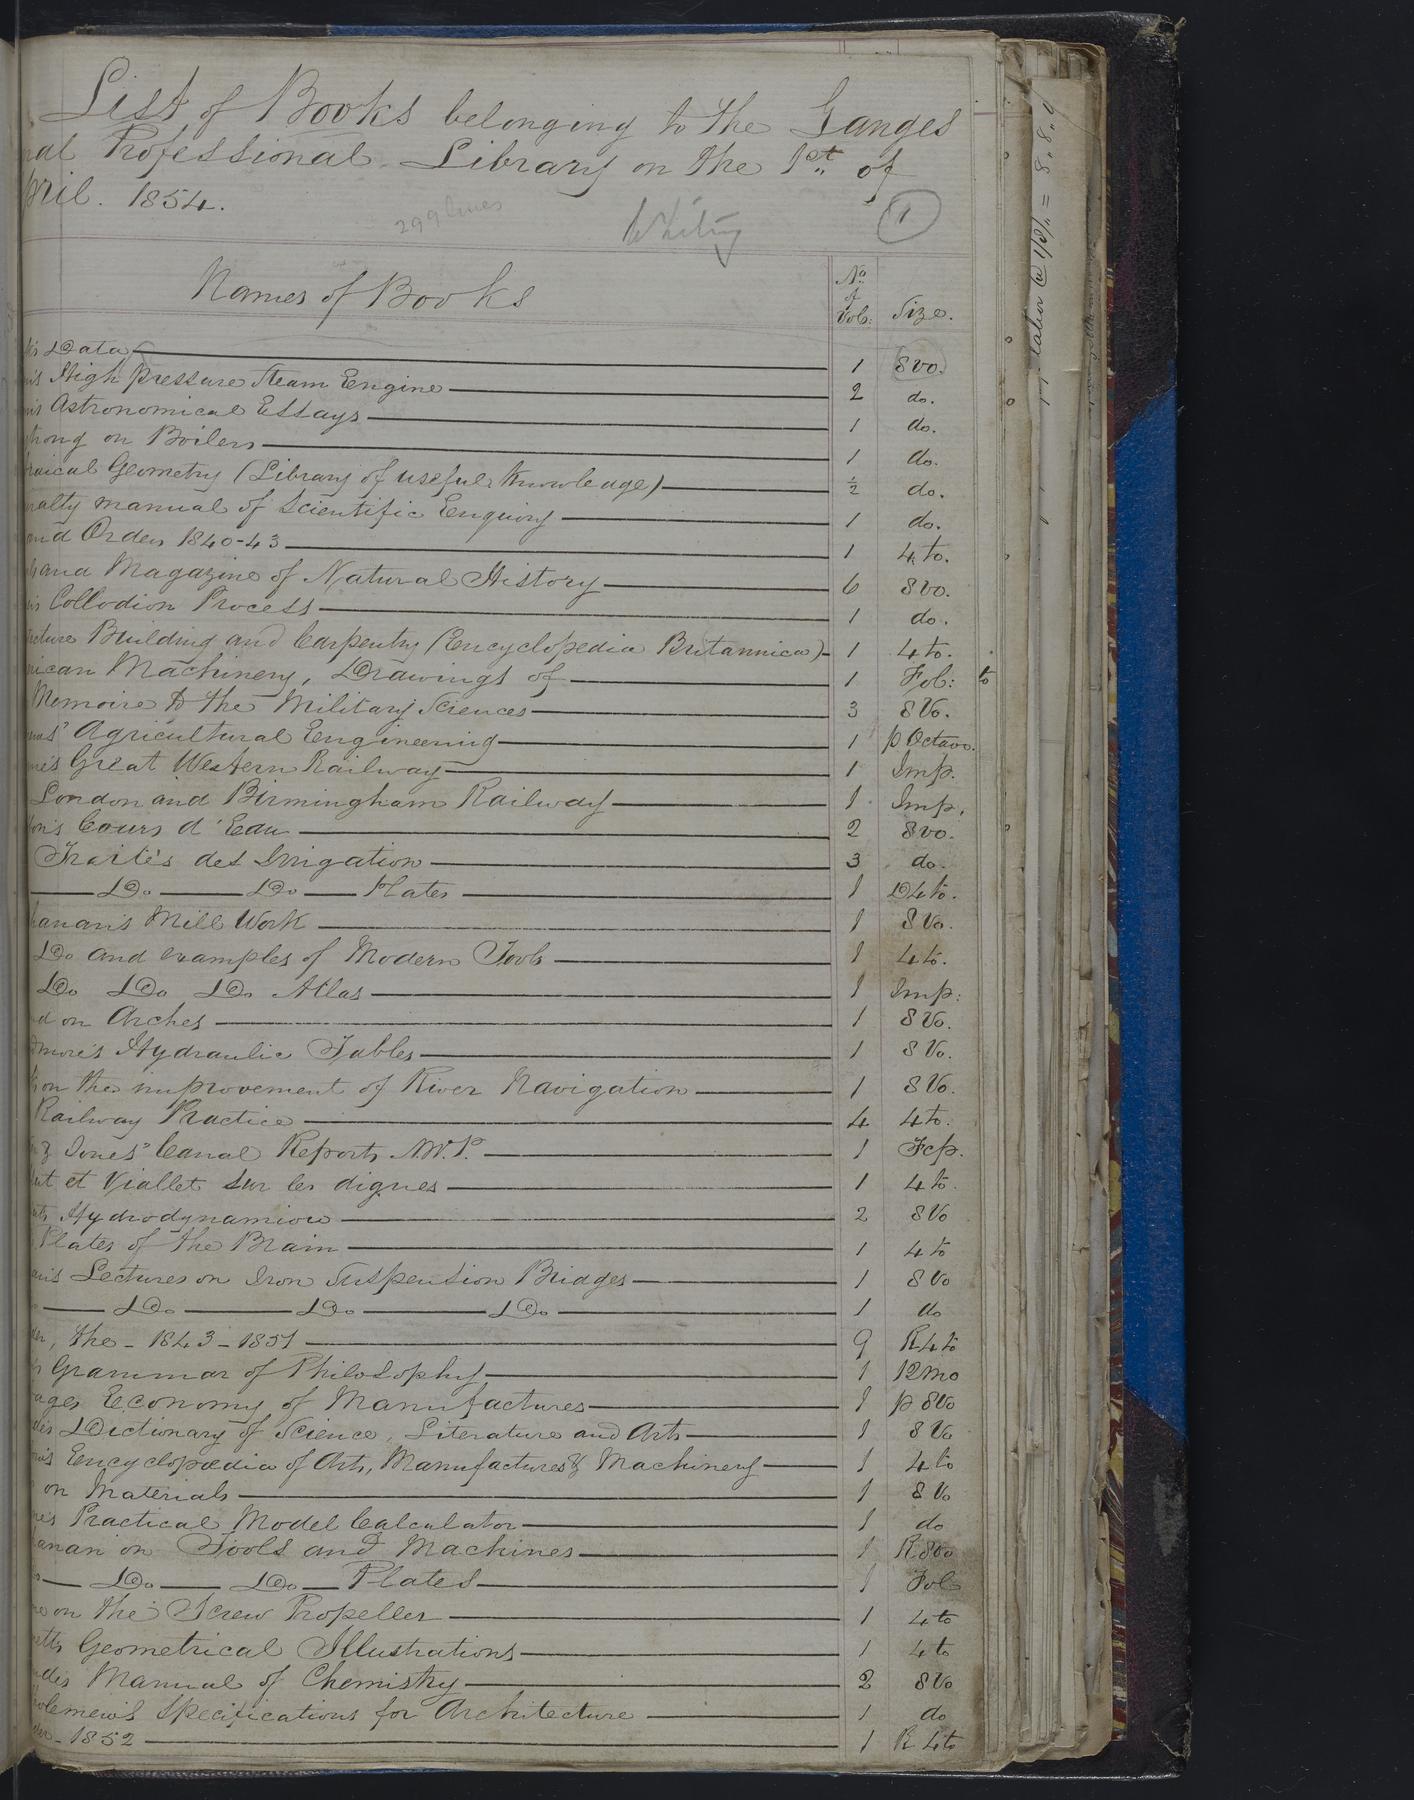 List of Books belonging to the Ganges
nal Professional Library on the 1st of
pril. 1854.
299 lines
Whiting
1
Names of Books
No of Vols: Size.
k's Data 1 8vo.
n's High pressure Steam Engine 2 do.
n's Astronomical Essays 1 do.
trong on Boilers 1 do.
braical Geometry (Library of useful Knowledge) ½ do.
iralty manual of Scientific Enquiry 1 do.
and Orders 1840-43 1 4to.
ls and Magazine of Natural History 6 8vo.
r's Collodion Process 1 do.
itecture Building and Carpentry (Encyclopedia Britannica) 1 4to.
rican Machinery, Drawings of 1 Fol: to
Memoire to the Military Sciences 3 8Vo.
ews' Agricultural Engineering 1 p Octavo.
ne's Great Western Railway 1 Imp.
London and Birmingham Railway 1 Imp.
on's Cours d'Eau 2 8vo.
Traités des Irrigation 3 do.
Do Do Plates 1 D4to.
hanan's Mill Work 1 8Vo.
Do and examples of Modern Tools 1 4to.
Do Do Do Atlas 1 Imp:
d on Arches 1 8Vo.
dmore's Hydraulic Tables 1 8Vo.
s on the improvement of River Navigation 1 8Vo.
Railway Practice 4 4to.
n & Jones' Canal Reports N.W.P. 1 Fcp.
ut et Viallet sur les digues 1 4to.
ts Hydrodynamique 2 8Vo
Plates of the Brain 1 4to
ry's Lectures on Iron Suspension Bridges 1 8Vo
Do Do Do 1 do
der, the - 1843 - 1851 9 R4to
s Grammar of Philosophy 1 12mo
bages Economy of Manufactures 1 p 8Vo
de's Dictionary of Science, Literature and Arts 1 8Vo
ow's Encyclopædia of Arts, Manufactures & Machinery 1 4to
on Materials 1 8Vo
ne's Practical Model Calculator 1 do
hanan on Tools and Machines 1 R.8vo
Do Do Plates 1 Fol
ne on the Screw Propeller 1 4to
netts Geometrical Illustrations 1 4to
nde's Manual of Chemistry 2 8Vo
holemew's Specifications for Architecture 1 do
der - 1852 1 R 4to